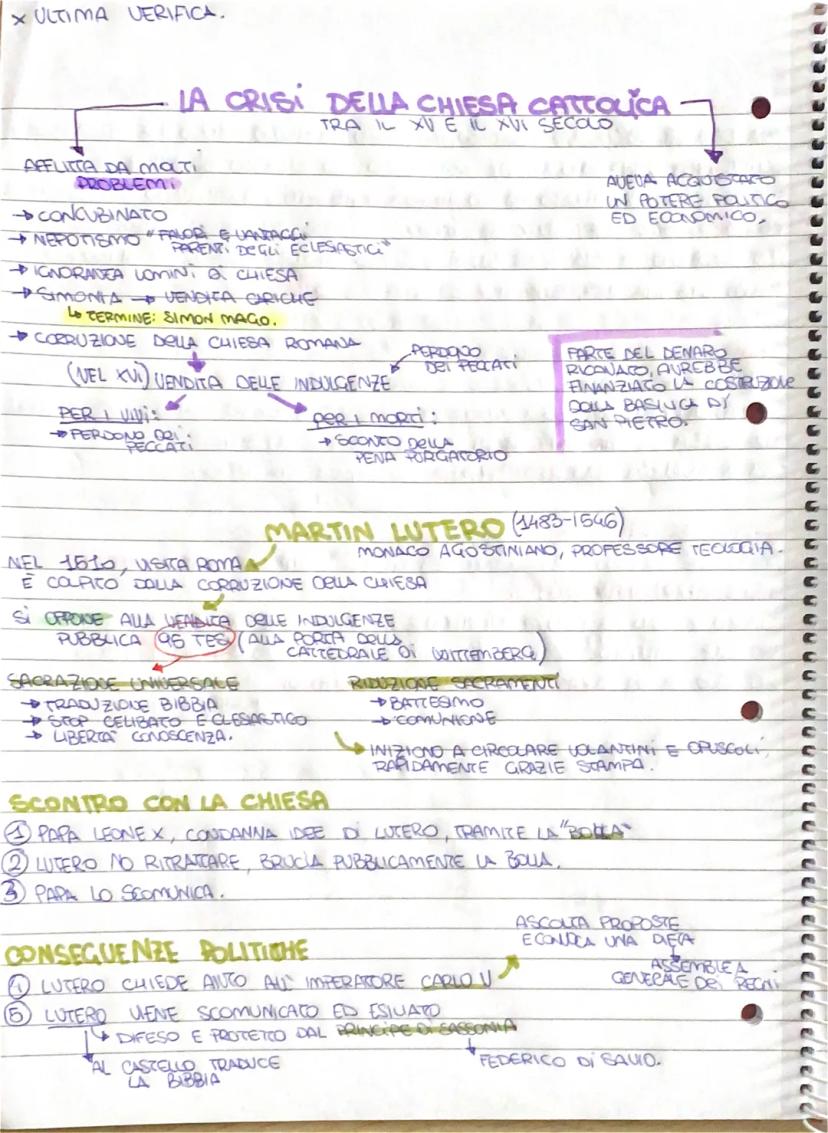 × ULTIMA VERIFICA.
LA CRISI DELLA CHIESA CATTOLICA
TRA IL XV E IL XVI SECOLO
AFFLITTA DA MOLTI
PROBLEMI
→ CONCUBINATO
→ NEPOTISMO "FAVORI E VANTAGGI
PARENTI DEGLI ECLESASTICI"
→ IGNORANZA UOMINI DI CHIESA
→ SIMONIA → VENDITA CARICHE
↳ TERMINE: SIMON MAGO.
→ CORRUZIONE DELLA CHIESA ROMANA
AVEVA ACQUISTATO
UN POTERE POLITICO
ED ECONOMICO.
(NEL XVI) VENDITA DELLE INDULGENZE
PERDONO
DEI PECCATI
PER I VIVI:
→ PERDONO DEI
PECCATI
PER I MORTI:
→ SCONTO DELLA
PENA PURGATORIO
PARTE DEL DENARO
RICAVATO, AVREBBE
FINANZIATO LA COSTRUZIONE
DELLA BASILICA DI
SAN PIETRO.
MARTIN LUTERO (1483-1546)
MONACO AGOSTINIANO, PROFESSORE TEOLOGIA.
NEL 1510, VISITA ROMA
È COLPITO DALLA CORRUZIONE DELLA CHIESA
SI OPPONE ALLA VENDITA DELLE INDULGENZE
PUBBLICA 95 TESI (ALLA PORTA DELLA
CATTEDRALE DI WITTEMBERG)
SACRAZIONE UNIVERSALE
→ TRADUZIONE BIBBIA
→ STOP CELIBATO ECLESASTICO
→ LIBERTÀ CONOSCENZA.
RIDUZIONE SACRAMENTI
→ BATTESIMO
→ COMUNIONE
↳ INIZIONO A CIRCOLARE VOLANTINI E OPUSCOLI,
RAPIDAMENTE GRAZIE STAMPA.
SCONTRO CON LA CHIESA
① PAPA LEONE X, CONDANNA IDEE DI LUTERO, TRAMITE LA "BOLLA"
② LUTERO NO RITRATTARE, BRUCIA PUBBLICAMENTE LA BOLLA.
③ PAPA LO SCOMUNICA.
CONSEGUENZE POLITICHE
④ LUTERO CHIEDE AIUTO ALL' IMPERATORE CARLO V
ASCOLTA PROPOSTE
E CONVOCA UNA DIETA
ASSEMBLEA
GENERALE DEI REGNI
⑤ LUTERO VIENE SCOMUNICATO ED ESILIATO
↳ DIFESO E PROTETTO DAL PRINCIPE DI SASSONIA
AL CASTELLO TRADUCE
LA BIBBIA
FEDERICO DI SAVIO.